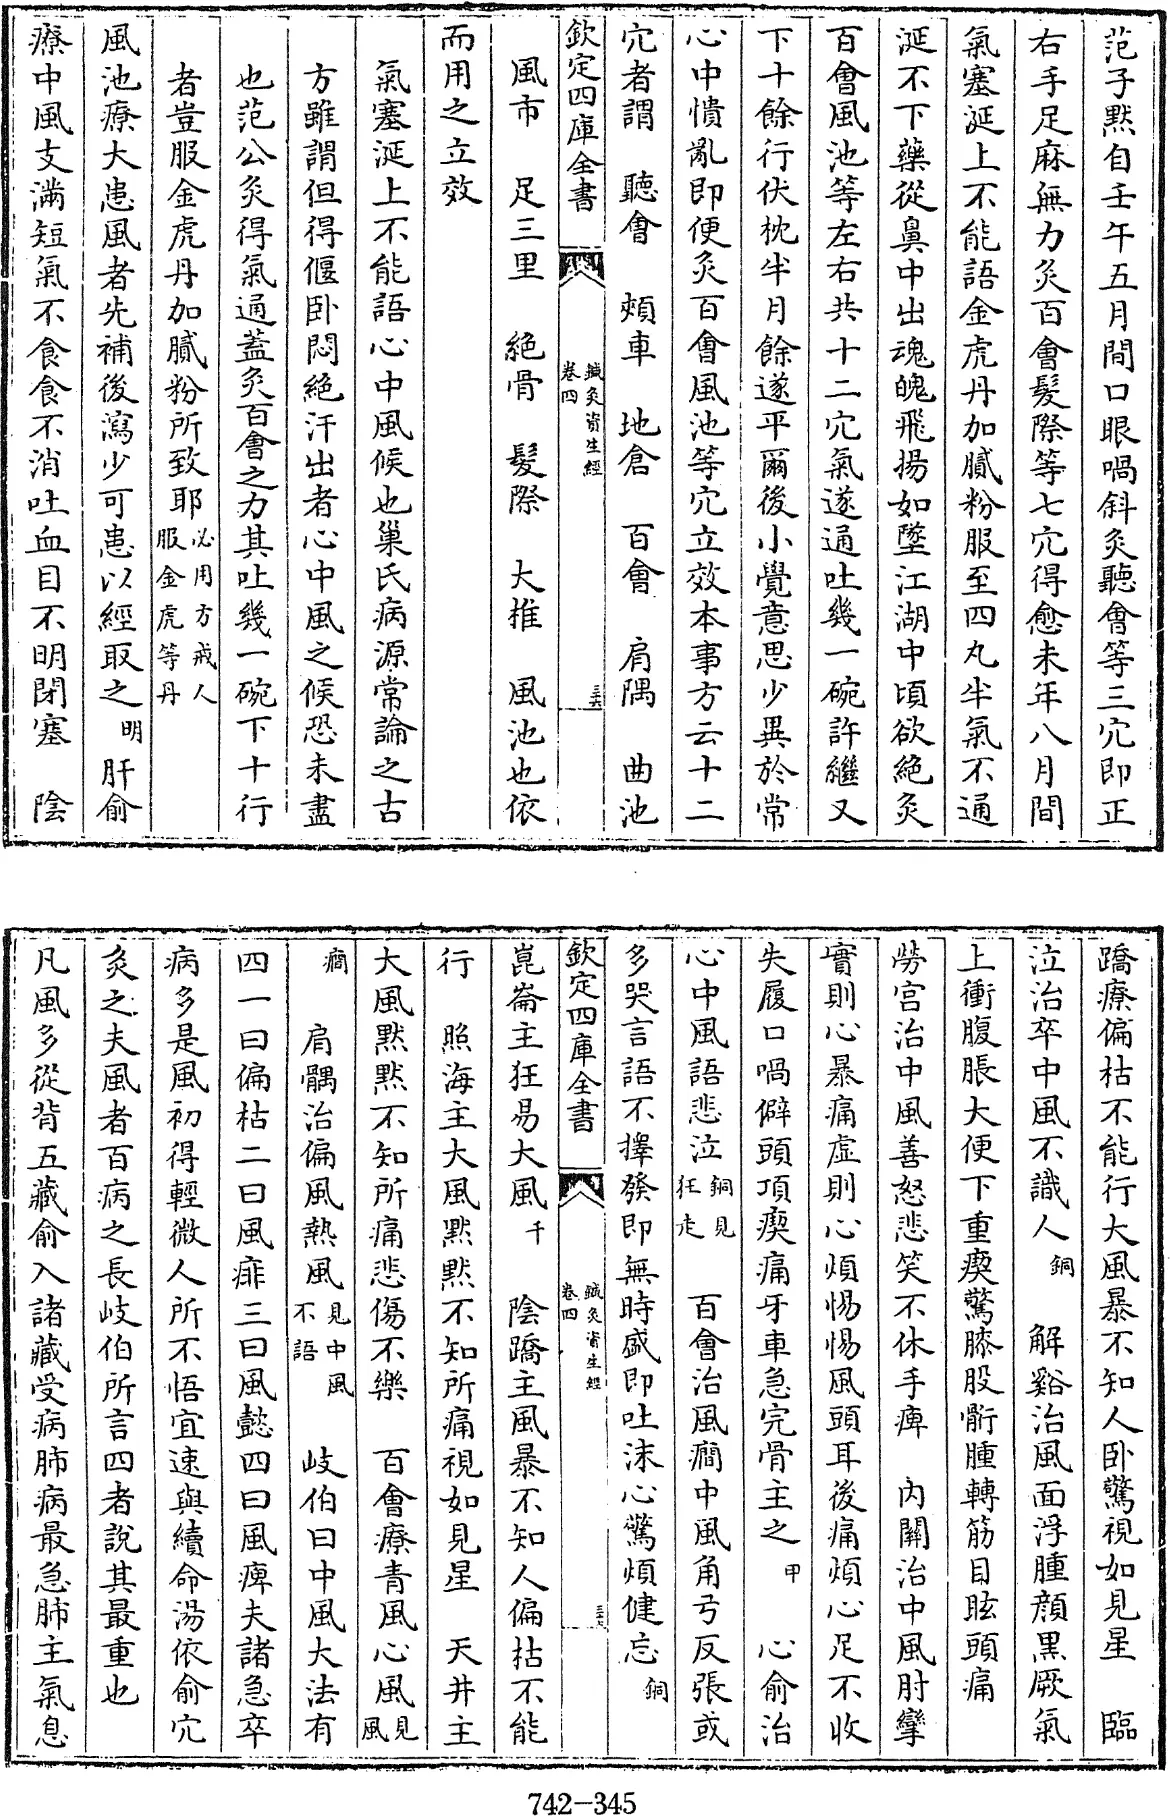 范子默自壬午五月間口眼喎斜灸聽會等三穴即正
右手足麻無力灸百會髮際等七穴得愈未年八月間
氣塞涎上不能語金虎丹加膩粉服至四丸半氣不通
涎不下藥從鼻中出魂魄飛揚如墜江湖中頃欲絶灸
百會風池等左右共十二穴氣遂通吐幾一碗許繼又
下十餘行伏枕半月餘遂平爾後小覺意思少異於常
心中憒亂即便灸百會風池等穴立效本事方云十二
穴者謂 聽會 頰車 地倉 百會 肩隅 曲池
欽定四庫全書 鍼灸資生經 卷四 三六
風市 足三里 絶骨 髮際 大推 風池也依
而用之立效
氣塞涎上不能語心中風候也巢氏病源常論之古
方雖謂但得偃卧悶絶汗出者心中風之候恐未盡
也范公灸得氣通蓋灸百會之力其吐幾一碗下十行
者豈服金虎丹加膩粉所致耶必用方戒人服金虎等丹
風池療大患風者先補後瀉少可患以經取之明 肝俞
療中風支滿短氣不食食不消吐血目不明閉塞 陰
蹻療偏枯不能行大風暴不知人卧驚視如見星 臨
泣治卒中風不識人銅 解谿治風面浮腫顔黒厥氣
上衝腹脹大便下重瘈驚膝股胻腫轉筋目眩頭痛
勞宫治中風善怒悲笑不休手痺 内關治中風肘攣
實則心暴痛虛則心煩惕惕風頭耳後痛煩心足不收
失履口喎僻頭項瘈痛牙車急完骨主之甲 心俞治
心中風語悲泣銅見狂走 百會治風癎中風角弓反張或
多哭言語不擇發即無時盛即吐沫心驚煩健忘銅
欽定四庫全書 鍼灸資生經 卷四
崑崙主狂易大風千 陰蹻主風暴不知人偏枯不能
行 照海主大風默默不知所痛視如見星 天井主
大風默默不知所痛悲傷不樂 百會療青風心風見風
癎 肩髃治偏風熱風見中風不語 岐伯曰中風大法有
四一曰偏枯二曰風痱三曰風懿四曰風痺夫諸急卒
病多是風初得輕微人所不悟宜速與續命湯依俞穴
灸之夫風者百病之長岐伯所言四者說其最重也
凡風多從背五藏俞入諸藏受病肺病最急肺主氣息
742-345